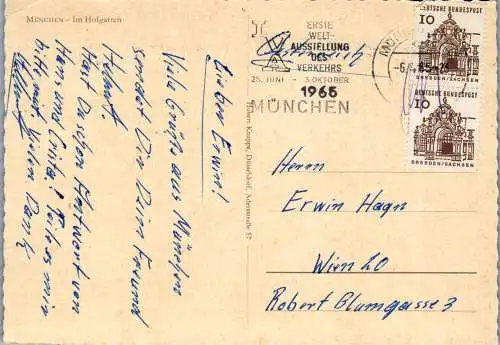 MÜNCHEN – Im Hofgarten
Lieber Erwin!
Viele Grüße aus München
sendet Dir Dein Freund
Helmut.
Hast Du schon Antwort von
Herrn und Teile es mir
bitte mit. Vielen Dank
Helmut
Hubert Knuppe, Düsseldorf, Adersstraße 57
ERSTE
WELT-
AUSSTELLUNG
DES
VERKEHRS
25. JUNI - 3. OKTOBER
1965
MÜNCHEN
DEUTSCHE BUNDESPOST
10
DRESDEN/SACHSEN
DEUTSCHE BUNDESPOST
10
DRESDEN/SACHSEN
Österreich
Herrn
Erwin Hagn
Wien 20
Robert Blumgasse 3